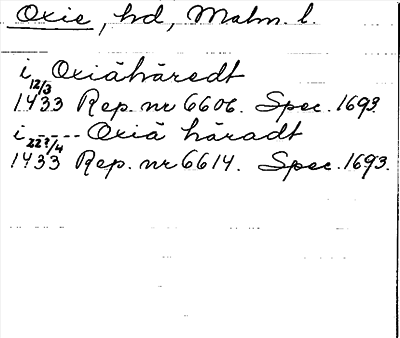 Oxie, hd, Malm. l.
i Oxiähäredt
12/3
1433 Rep. nr 6606. Spec. 1693.
i ---- Oxiä häradt
22?/4
1433 Rep. nr 6614. Spec. 1693.